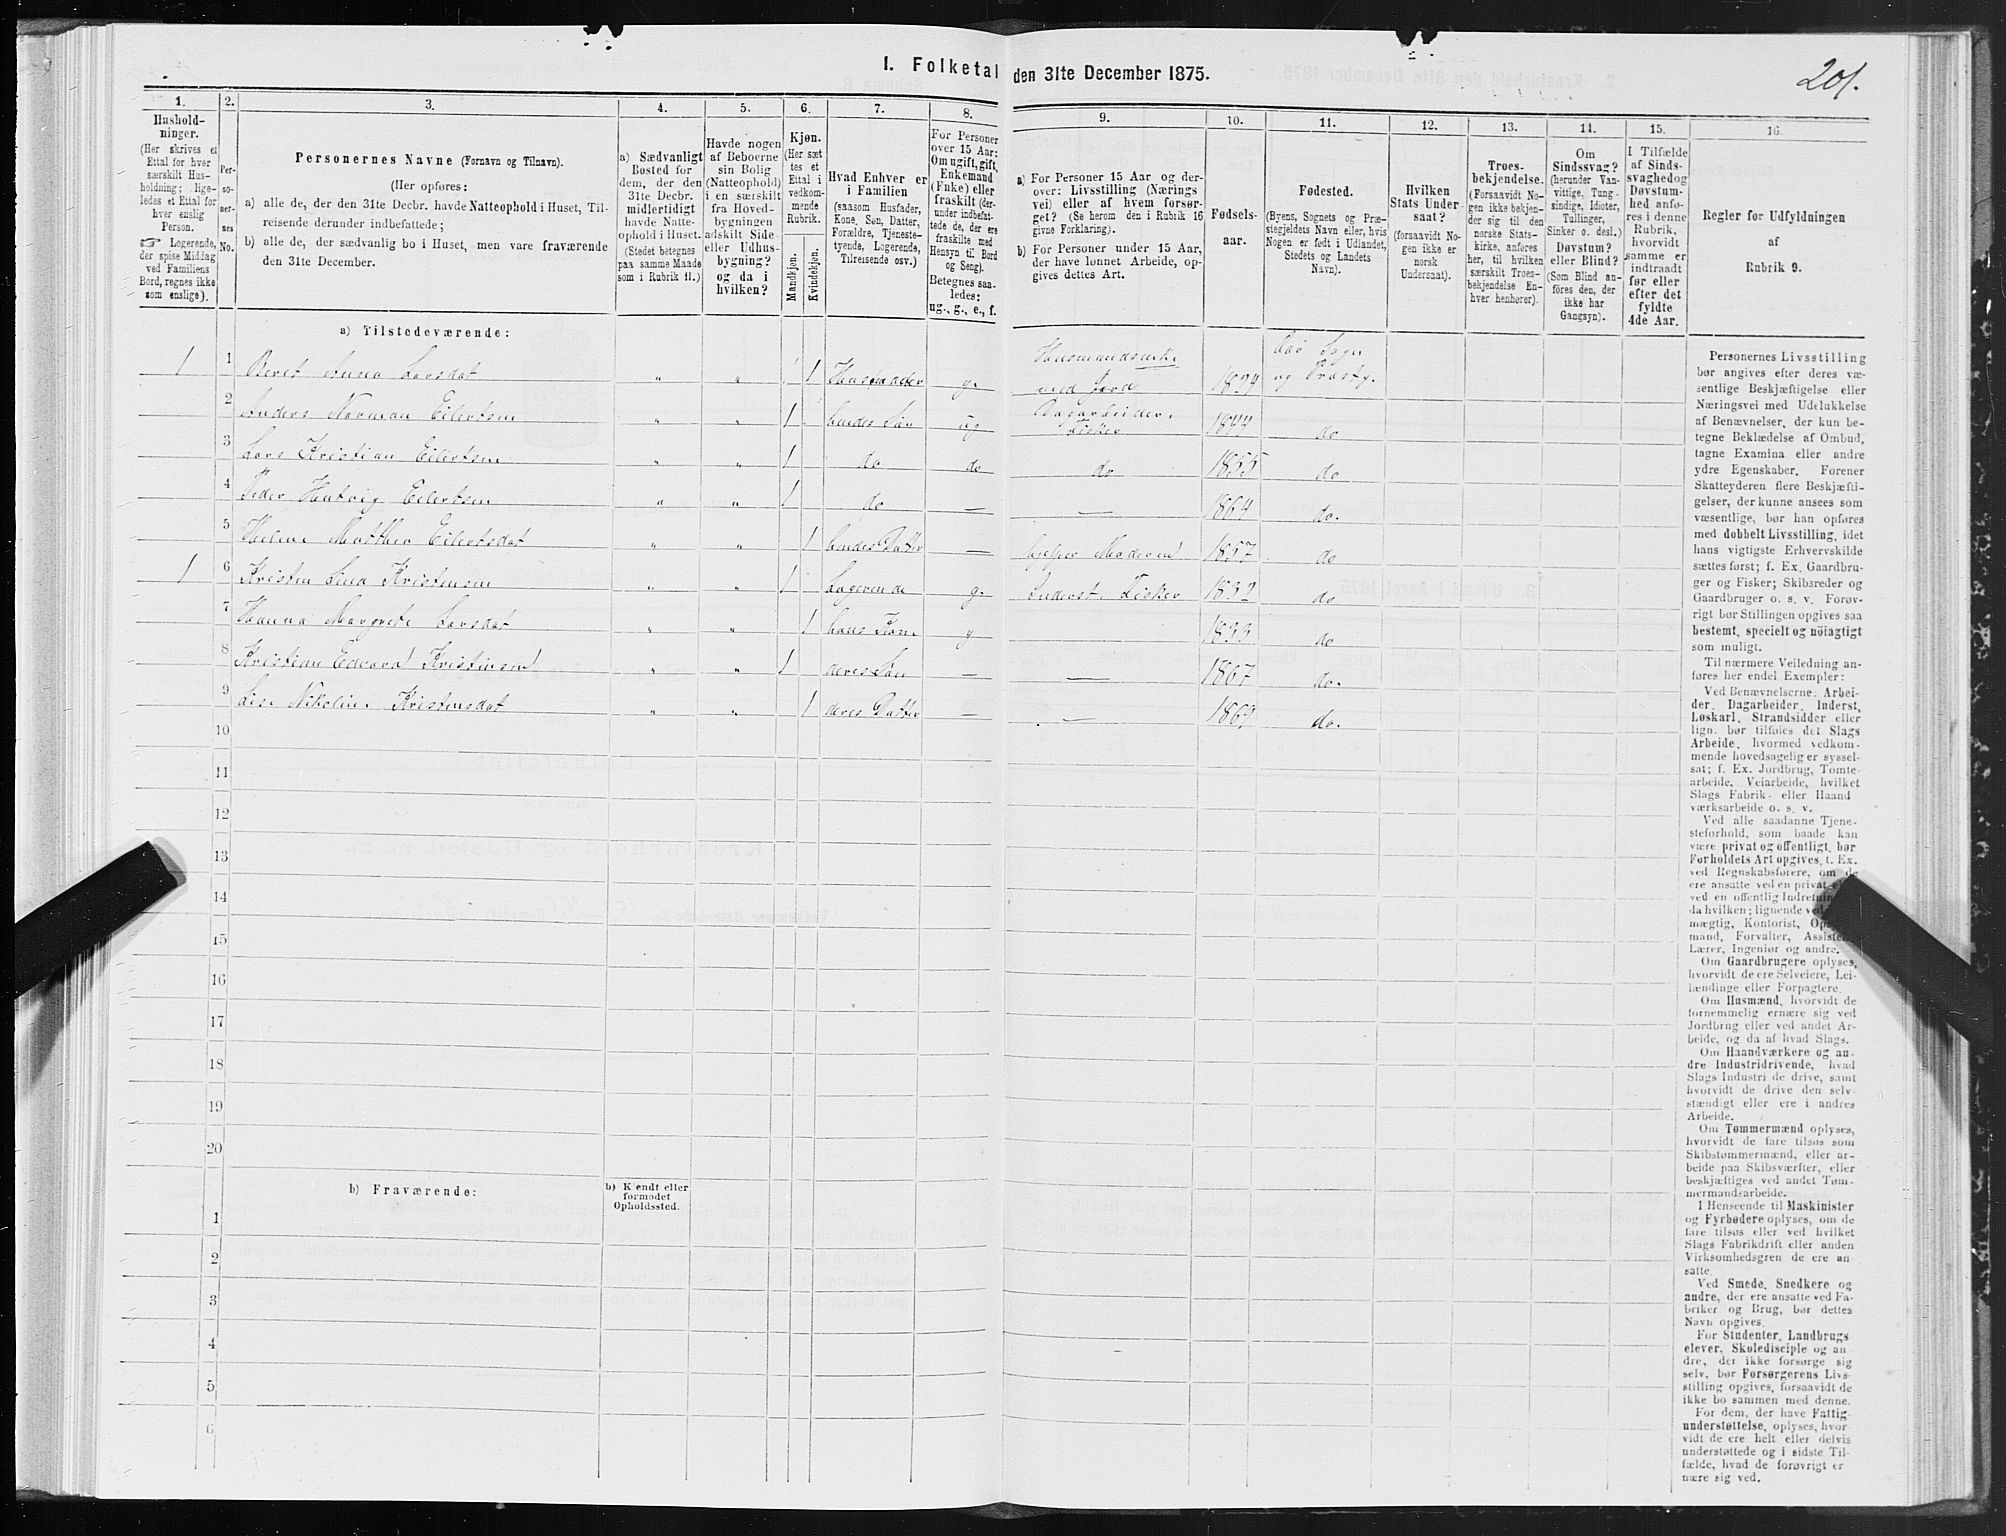 201.
1. Folketal den 31te December 1875.
1. 2. 3. 4. 5. 6. 7. 8. 9. 10. 11. 12. 13. 14. 15. 16.
Hushold-
ninger.
(Her skrives et
Ettal for hver
særskilt Hus-
holdning; lige-
ledes et Ettal for
hver enslig
Person.
☞ Logerende,
der spise Middag
ved Familiens
Bord, regnes ikke
som enslige).
Per-
so-
ner-
nes
No.
Personernes Navne (Fornavn og Tilnavn).
(Her opføres:
a) alle de, der den 31te Decbr. havde Natteophold i Huset, Til-
reisende derunder indbefattede;
b) alle de, der sædvanlig bo i Huset, men vare fraværende
den 31te December.
a) Sædvanligt
Bosted for
dem, der den
31te Decbr.
midlertidigt
havde Natte-
ophold i Huset.
(Stedet betegnes
paa samme Maade
som i Rubrik 11.)
Havde nogen
af Beboerne
sin Bolig
(Natteophold)
i en særskilt
fra Hoved-
bygningen
adskilt Side-
eller Udhus-
bygning?
og da i
hvilken?
Kjøn.
(Her sæt
tes et
Ettal i
vedkom-
mende
Rubrik.
Mandkjøn.
Kvindekjøn.
Hvad Enhver er
i Familien
(saasom Husfader,
Kone, Søn, Datter,
Forældre, Tjeneste-
tyende, Logerende,
Tilreisende osv.)
For Personer
over 15 Aar:
Om ugift, gift,
Enkemand
(Enke) eller
fraskilt (der-
under indbefat-
tede de, der ere
fraskilte med
Hensyn til Bord
og Seng).
Betegnes saa-
ledes:
ug., g., e., f.
a) For Personer 15 Aar og der-
over: Livsstilling (Nærings
vei) eller af hvem forsør-
get? (Se herom den i Rubrik 16
givne Forklaring).
b) For Personer under 15 Aar,
der have lønnet Arbeide, op-
gives dettes Art.
Fødsels-
aar.
Fødested.
(Byens, Sognets og Præ-
stegjeldets Navn eller, hvis
Nogen er født i Udlandet,
Stedets og Landets
Navn).
Hvilken
Stats Under-
saat?
(forsaavidt No-
gen ikke er
norsk
Undersaat).
Troes-
bekjendelse.
(Forsaavidt No-
gen ikke bekjen-
der sig til den
norske Stats-
kirke, anføres
her, til hvilken
særskilt Troes-
bekjendelse En-
hver henhører).
Om
Sindssvag?
(herunder Van-
vittige, Tung-
sindige, Idioter,
Tullinger,
Sinker o. desl.)
Døvstum?
eller Blind?
(Som Blind an-
føres den, der
ikke har
Gangsyn).
I Tilfælde
af Sinds-
svaghed og
Døvstum-
hed anfø-
res i denne
Rubrik,
hvorvidt
samme er
indtraadt
før eller
efter det
fyldte
4de Aar.
Regler for Udfyldningen
af
Rubrik 9.
a) Tilstedeværende:
1 1 Beret Anna Larsdat " " 1 g. med Jord 1824
2 Anders Norman Eilertsen " " 1 hendes Søn ug Dagarbeider. Fisker 1844 do
3 Lars Kristian Eilertsen " " 1 do do do 1855 do
4 Peder Hutvig Eilertsen " " 1 do — — 1864 do.
5 Helene Matthea Eilertsdat " " 1 hendes Datter — hjelper Moderen 1857 do
1 6 Kristen Lina Kristensen " " 1 Logerende g. Inderst. Fisker 1832 do
7 Hanna Margrete Larsdat " " 1 hans Kone g 1833 do
8 Kristian Edvard Kristensen " " 1 deres Søn — — 1867 do.
9 Lise Nikoline Kristensdat " " 1 deres Datter — — 1869 do.
10
11
12
13
14
15
16
17
18
19
20
b) Fraværende:
b) Kjendt eller
formodet
Opholdssted.
1
2
3
4
5
6
Personernes Livsstilling
bør angives efter deres væ-
sentlige Beskjæftigelse eller
Næringsvei med Udelukkelse
af Benævnelser, der kun be-
tegne Beklædelse af Ombud,
tagne Examina eller andre
ydre Egenskaber. Forener
Skatteyderen flere Beskjæfti-
gelser, der kunne ansees som
væsentlige, bør han opføres
med dobbelt Livsstilling, idet
hans vigtigste Erhvervskilde
sættes først; f. Ex. Gaardbru-
ger og Fisker; Skibsreder og
Gaardbruger o. s. v. Forøv-
rigt bør Stillingen opgives saa
bestemt, specielt og nöiagtigt
som muligt.
Til nærmere Veiledning an-
føres her endel Exempler:
Ved Benævnelserne: Arbei-
der, Dagarbeider, Inderst,
Løskarl, Strandsidder eller
lign. bør tilføies det Slags
Arbeide, hvormed vedkom-
mende hovedsagelig er syssel-
sat; f. Ex. Jordbrug, Tomte-
arbeide, Veiarbeide, hvilket
Slags Fabrik- eller Haand
værksarbeide o. s. v.
Ved alle saadanne Tjene-
steforhold, som baade kan
være privat og offentligt, bør
Forholdets Art opgives, f. Ex.
ved Regnskabsførere, om de
ere ansatte ved en privat
ved en offentlig
da hvilken; lignende ved
mægtig, Kontorist,
mand, Forvalter,
Lærer, Ingeniør og andre.
Om Gaardbrugere oplyses,
hvorvidt de ere Selveiere, Lei-
lændinge eller Forpagtere.
Om Husmænd, hvorvidt de
fornemmelig ernære sig ved
Jordbrug eller ved andet Ar-
beide, og da af hvad Slags.
Om Haandværkere og an-
dre Industridrivende, hvad
Slags Industri de drive, samt
hvorvidt de drive den selv-
stændigt eller ere i andres
Arbeide.
Om Tømmermænd oplyses,
hvorvidt de fare tilsøs som
Skibstømmermænd, eller ar-
beide paa Skibsværfter, eller
beskjæftiges ved andet Tøm-
mermandsarbeide.
I Henseende til Maskinister
og Fyrbødere oplyses, om de
fare tilsøs eller ved hvilket
Slags Fabrikdrift eller anden
Virksomhedsgren de ere an-
satte.
Ved Smede, Snedkere og
andre, der ere ansatte ved Fa-
briker og Brug, bør dettes
Navn opgives.
For Studenter, Landbrugs
elever, Skoledisciple og an
dre, der ikke forsørge sig
selv, bør Forsørgerens Livs-
stilling opgives, forsaavidt de
ikke bo sammen med denne.
For dem, der have Fattig-
understøttelse, oplyses, hvor-
vidt de ere helt eller delvis
understøttede og i sidste Til-
fælde, hvad de forøvrigt er
nære sig ved.